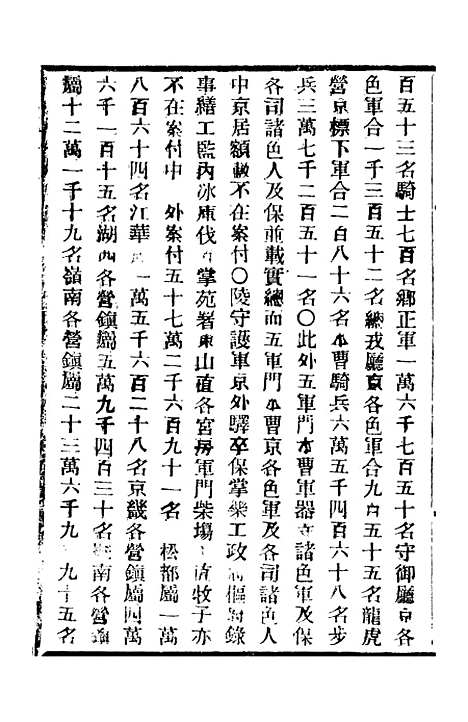 百五十三名騎士七百名鄉正軍一萬六千七百五十名守御廳京各
色軍合一千三百五十二名總戎廳京各色軍合九百五十五名龍虎
營京標下軍合二百八十六名本曹騎兵六萬五千四百六十八名步
兵三萬七千二百五十一名〇此外五軍門本曹軍器寺諸色軍及保
各司諸色人及保並載實總而五軍門本曹京各色軍及各司諸色人
中京居額數不在案付〇陵守護軍京外驛卒保掌樂工政 樞 錄
事繕工監內冰庫伐 掌苑署東山直各宮房軍門柴場 直牧子亦
不在案付中 外案付五十七萬二千六百九十一名 松都屬一萬
八百六十四名江華 一萬五千六百二十八名京畿各營鎮屬四萬
六千一百十五名湖西各營鎮屬五萬九千四百三十名 南各營鎮
屬十二萬一千十九名嶺南各營鎮屬二十三萬六千九 九十五名